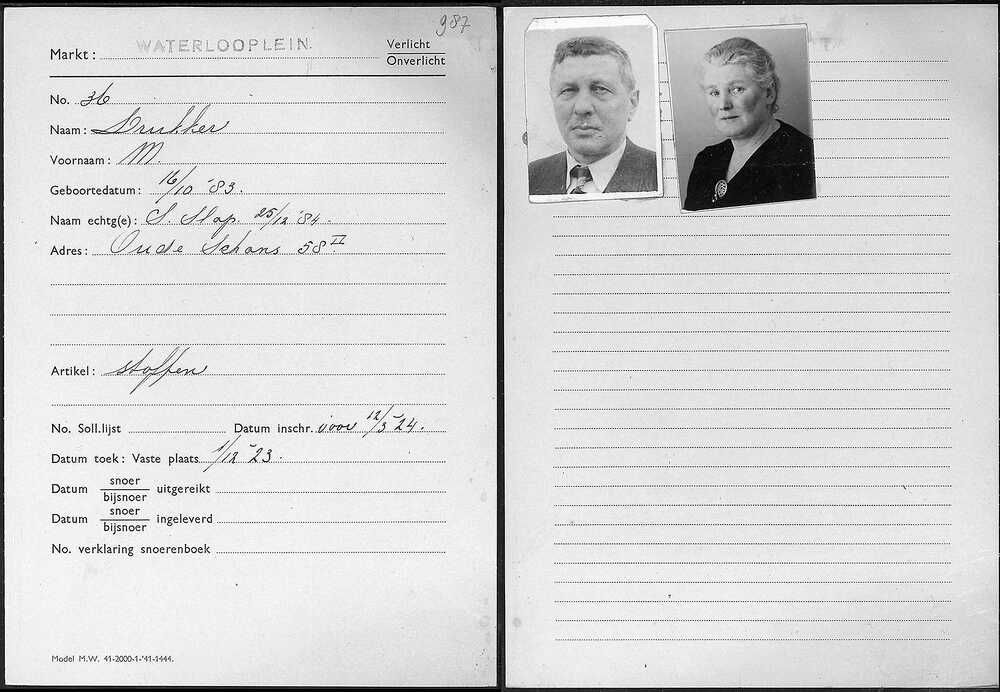 987
Markt: WATERLOOPLEIN. Verlicht
Onverlicht
No. 36
Naam: Drukker
Voornaam: M.
Geboortedatum: 16/10 '83.
Naam echtg(e): S. Slap. 25/12 '84.
Adres: Oude Schans 58 II
Artikel: stoffen
No. Soll.lijst Datum inschr. voor 12/3 '24.
Datum toek: Vaste plaats 1/12 '23.
Datum snoer
bijsnoer uitgereikt
Datum snoer
bijsnoer ingeleverd
No. verklaring snoerenboek
Model M.W. 41-2000-1-'41-1444.